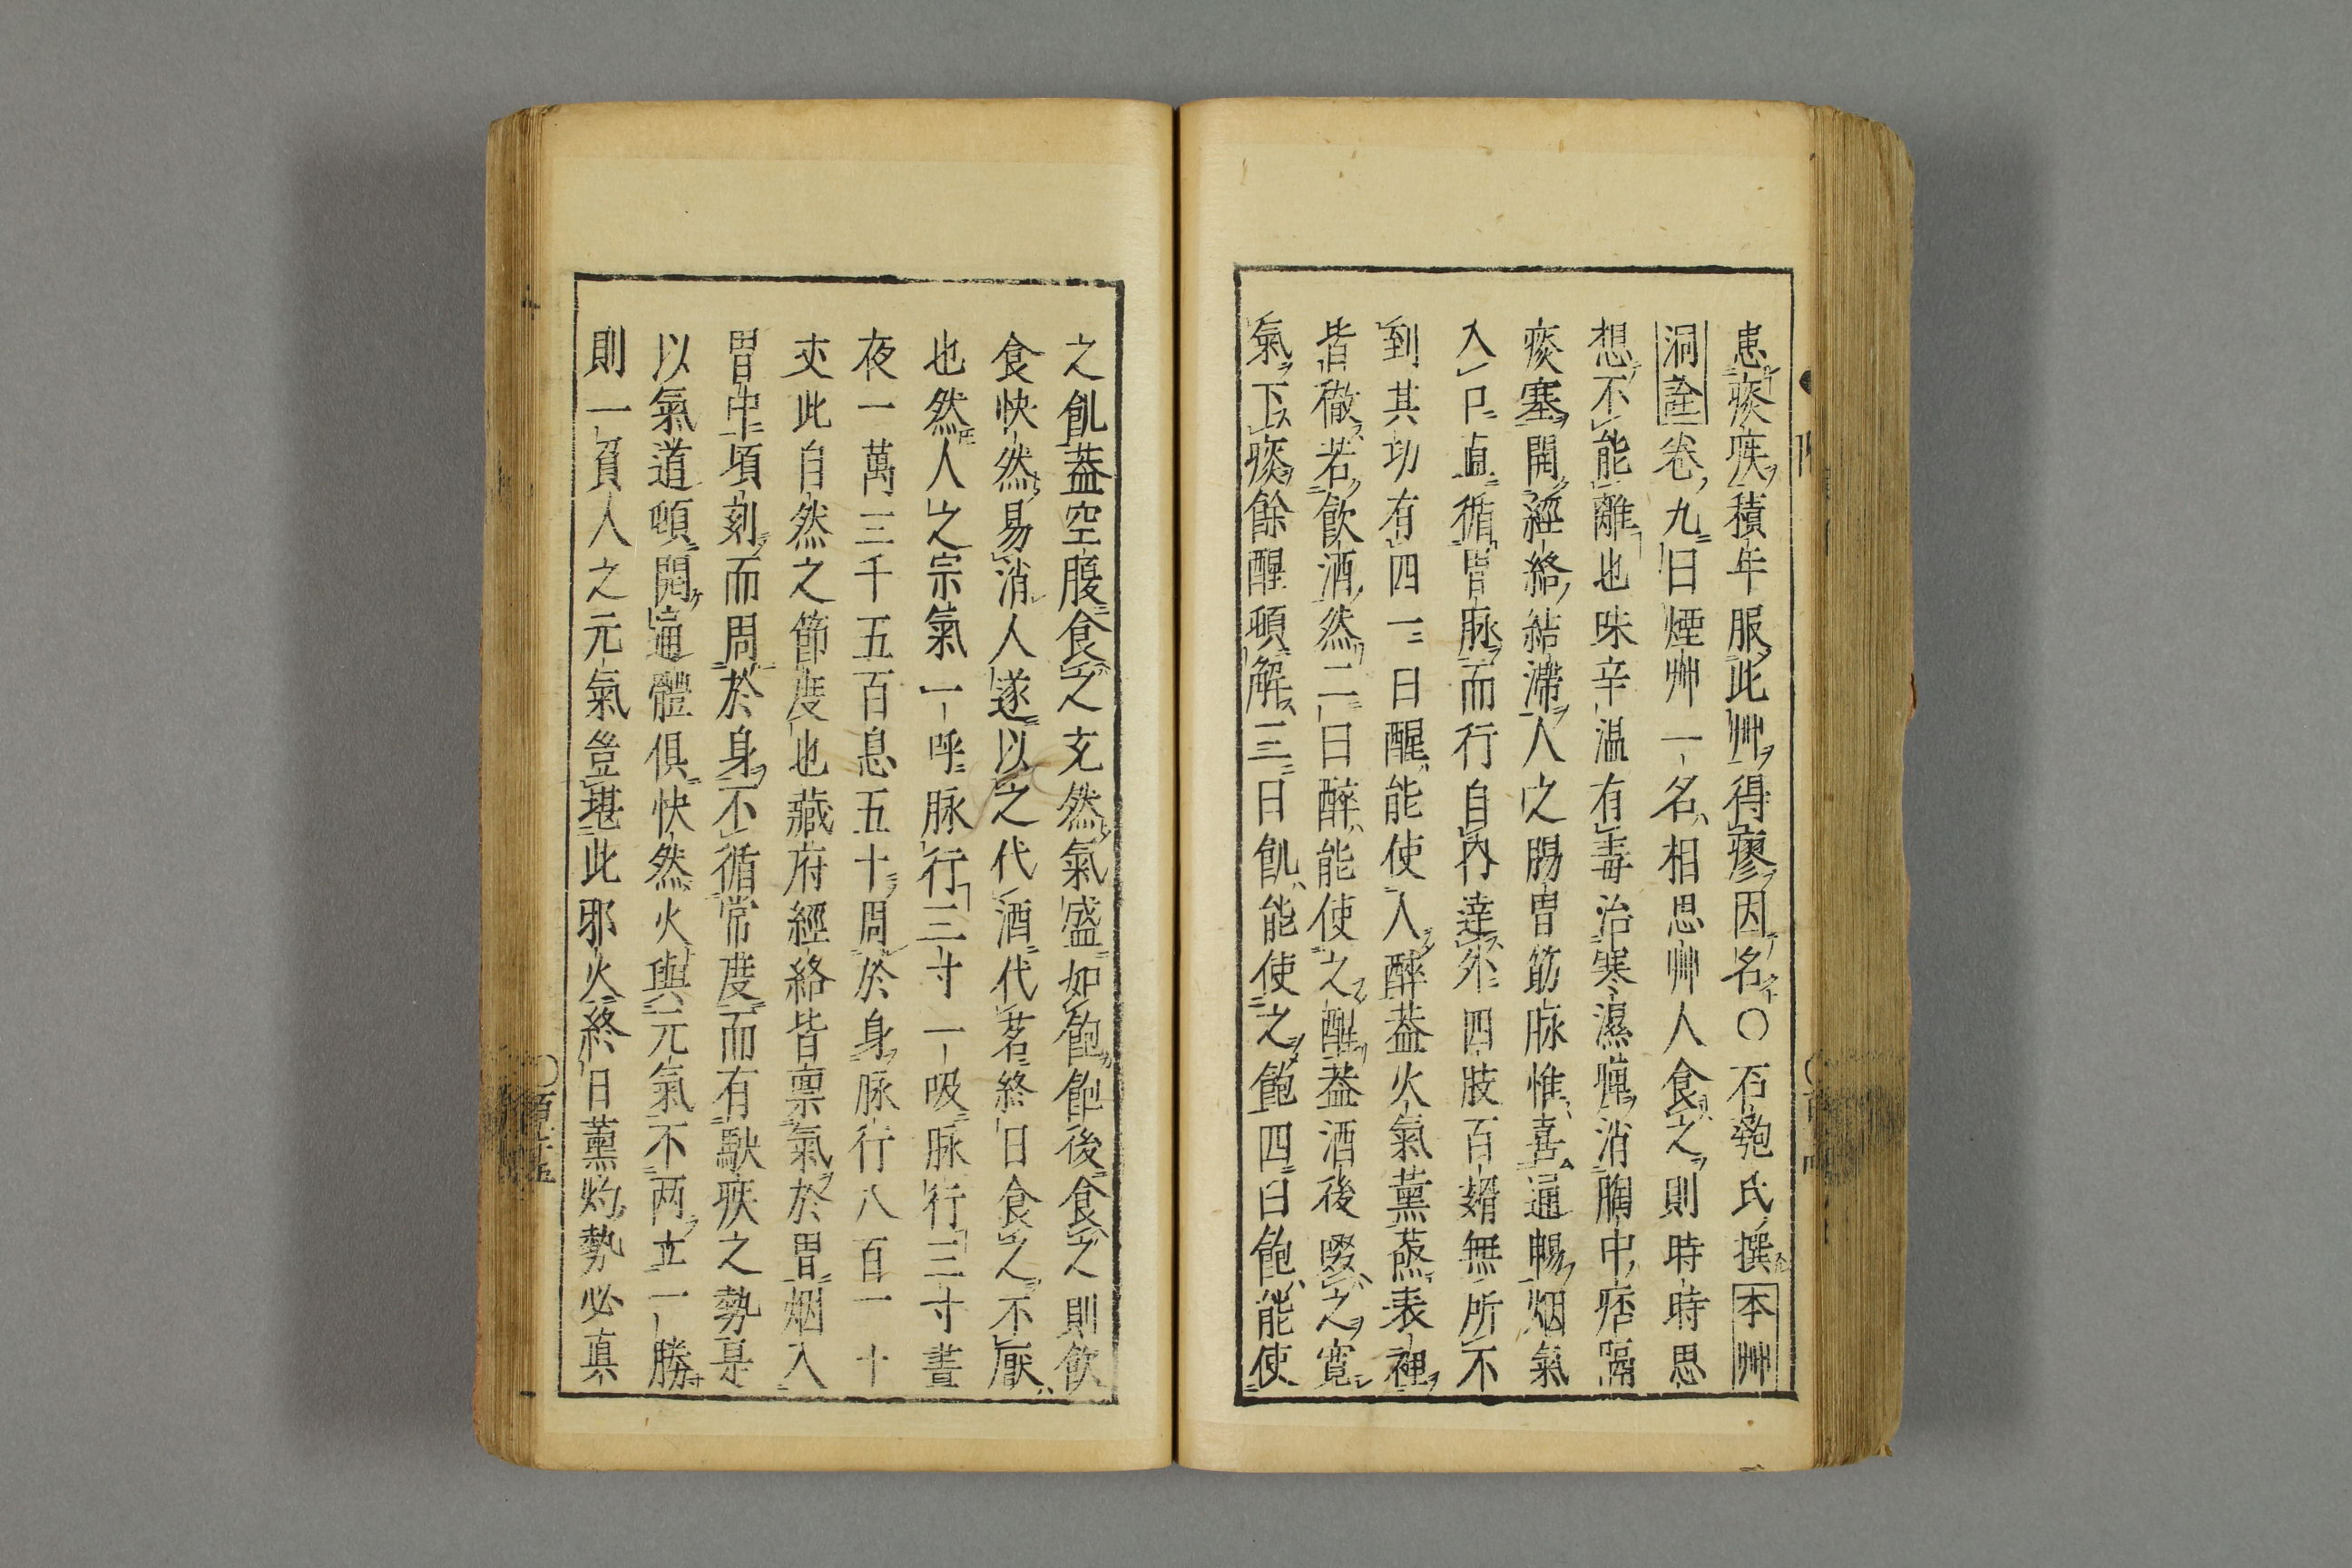 患痰疾積年服此艸得瘳因名〇石匏氏撰本艸
洞詮卷九曰煙艸一名相思艸人食之則時時思
想不能離也味辛温有毒治寒濕痺消胸中痞隔
痰塞開經絡結滯人之腸胃筋脉惟喜通暢烟氣
入口直循胃脉而行自内達外四肢百骸無所不
到其功有四一曰醒能使人醉葢火氣薰蒸表裡
皆徹若飲酒然二曰醉能使之醒葢酒後啜之寛
氣下痰餘酲頓解三曰飢能使之飽四曰飽能使
之飢葢空腹食之充然氣盛如飽飽後食之則飲
食快然易消人遂以之代酒代茗終日食之不厭
也然人之宗氣一呼脉行三寸一吸脉行三寸晝
夜一萬三千五百息五十周於身脉行八百一十
丈此自然之節度也藏府經絡皆禀氣於胃烟入
胃中頃刻而周於身不循常度而有駃疾之勢是
以氣道頓開通體俱快然火與元氣不两立一勝
則一負人之元氣豈堪此邪火終日薰灼勢必真